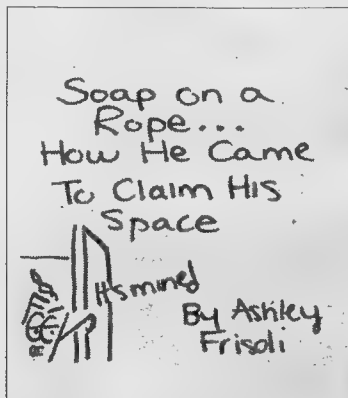 Soap on a
Rope...
How He Came
To Claim His
Space
It's mined
By Ashley
Frisoli